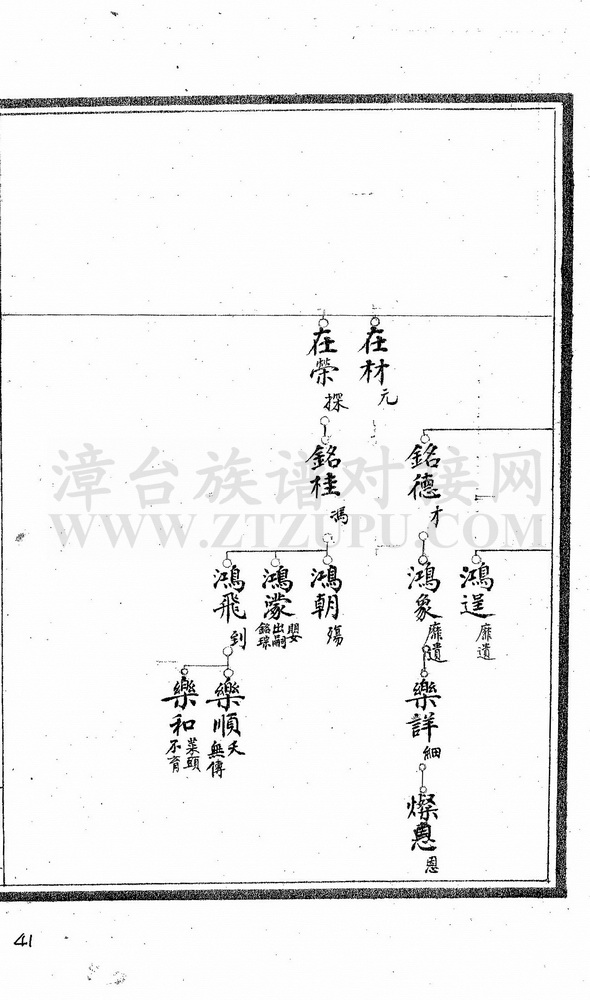 在材
元
在榮
探
銘德
才
銘桂
馮
鴻逞
靡遺
鴻象
靡遺
鴻朝
殤
鴻濛
嬰
出嗣
銘琮
鴻飛
到
樂詳
細
樂順
夭
無傳
樂和
菜頭
不育
燦恩
恩
漳台族谱对接网
WWW.ZTZUPU.COM
41